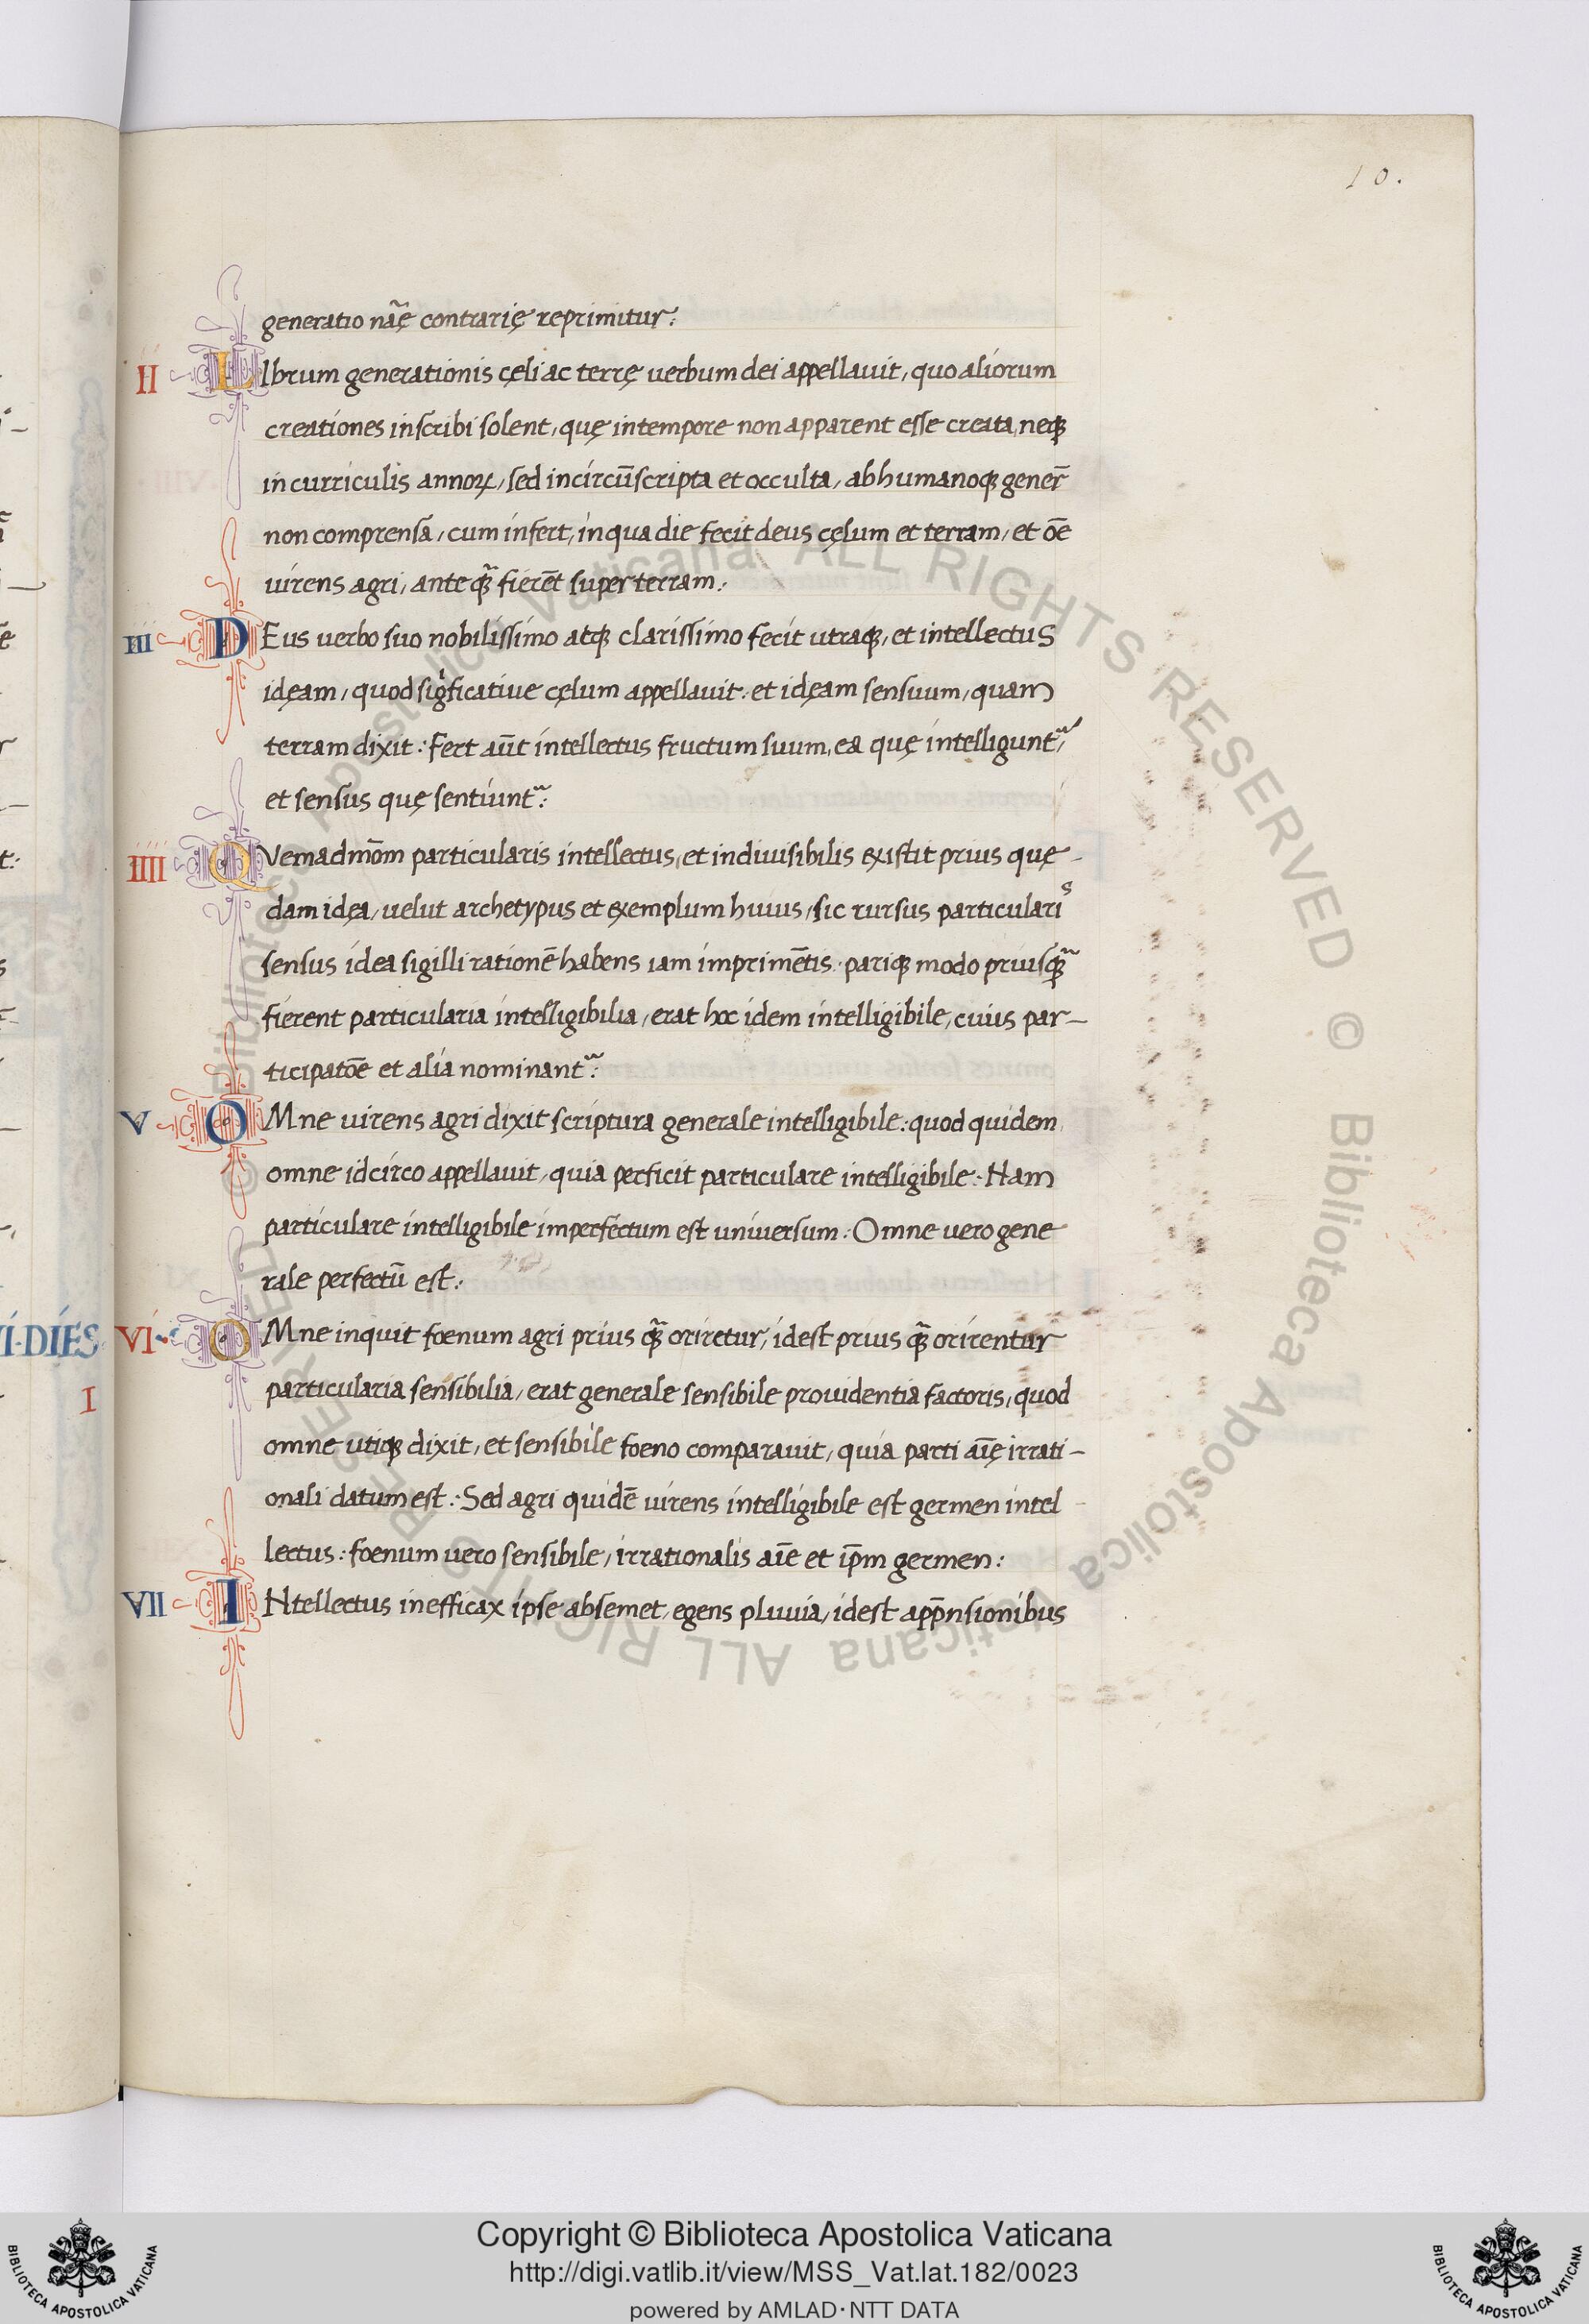 10.
generatio nãę contrarię reprimitur:
II LIbrum generationis cęli ac terrę uerbum dei appellauit, quo aliorum
creationes inscribi solent, quę in tempore non apparent esse creata, neqꝫ
in curriculis annoꝝ, sed incircũscripta et occulta, ab humanoqꝫ gener̃
non comprensa, cum infert, in qua die fecit deus cęlum et terram, et õe
uirens agri, ante qꝫ̃ fierẽt super terram:
III DEus uerbo suo nobilissimo atqꝫ clarissimo fecit utraqꝫ, et intellectus
idęam, quod sigͥficatiue cęlum appellauit: et idęam sensuum, quam
terram dixit: Fert aũt intellectus fructum suum, ea quę intelligunt᷑,
et sensus quę sentiunt᷑:
IIII QVemadmõm particularis intellectus, et indiuisibilis existit prius quę-
dam idęa, uelut archetypus et exemplum huius, sic rursus particularis
sensus idea sigilli rationẽ habens iam imprimẽtis: pariqꝫ modo priusqꝫ̃
fierent particularia intelligibilia, erat hoc idem intelligibile, cuius par-
ticipatõe et alia nominant᷑:
V OMne uirens agri dixit scriptura generale intelligibile: quod quidem
omne idcirco appellauit, quia perficit particulare intelligibile: Nam
particulare intelligibile imperfectum est uniuersum: Omne uero gene
rale perfectũ est:
VI OMne inquit foenum agri prius qꝫ̃ oriretur, idest prius qꝫ̃ orirentur
particularia sensibilia, erat generale sensibile prouidentia factoris, quod
omne utiqꝫ dixit, et sensibile foeno comparauit, quia parti aĩę irrati-
onali datum est: Sed agri quidẽ uirens intelligibile est germen intel
lectus: foenum uero sensibile, irrationalis aĩe et ip̃m germen:
VII INtellectus inefficax ipse absemet, egens pluuia, idest app̃nsionibus
VI·DIES
I
© Biblioteca Apostolica Vaticana ALL RIGHTS RESERVED © Biblioteca Apostolica Vaticana ALL RIGHTS RESERVED
Copyright © Biblioteca Apostolica Vaticana
http://digi.vatlib.it/view/MSS_Vat.lat.182/0023
powered by AMLAD·NTT DATA
BIBLIOTECA APOSTOLICA VATICANA
BIBLIOTECA APOSTOLICA VATICANA